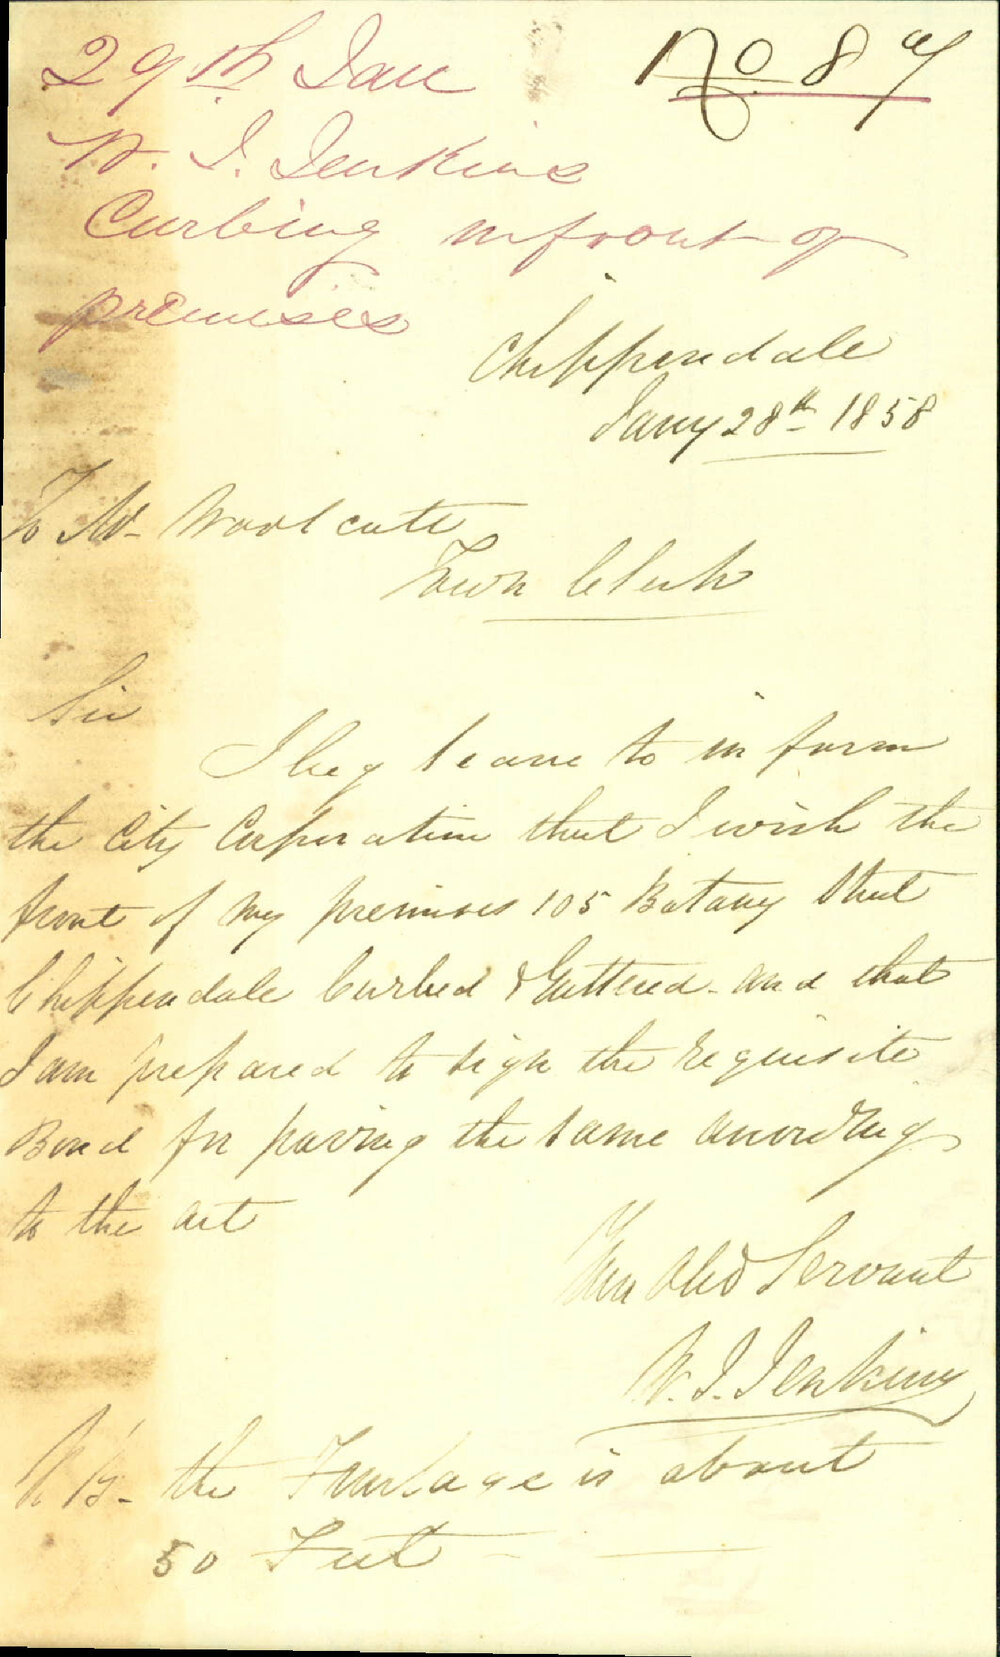 29th Jan
No 87
W. J. Jenkins
Curbing in front of
premises
Chippendale
Jany 28th 1858
To Mr Woolcott
Town Clerk
Sir
I beg leave to inform
the City Corporation that I wish the
front of my premises 105 Botany Street
Chippendale Curbed & Guttered - and that
I am prepared to sign the requisite
Bond for paving the same according
to the act
Your Obd Servant
W. J. Jenkins
N B - the Frontage is about
50 Feet